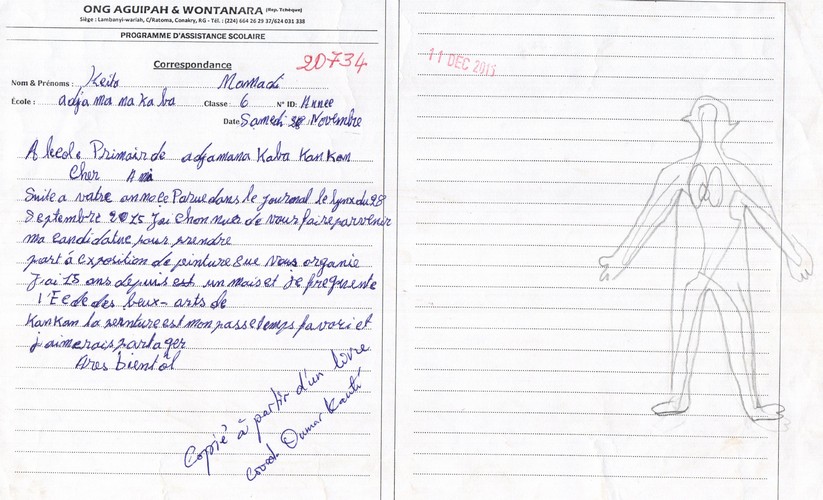 ONG AGUIPAH & WONTANARA (Rep. Tchèque)
Siège : Lambanyi-wariah, C/Ratoma, Conakry, RG - Tél. : (224) 664 26 29 37/624 031 338
PROGRAMME D'ASSISTANCE SCOLAIRE
Correspondance
20734
Nom & Prénoms : Keita Mamadi
École : adjamanakaba Classe : 6 N° ID: Annee
Date Samedi 28 Novembre
A lecole Primairde adjamana Kaba KanKan
Cher Ami
Suite a votre annoce Parue dans le journal le lynx du 28
Septembre 2015 J'ai l'honnuer de vous faire parvenir
ma candidatue pour prendre
part à exposition de peinture sue vous organie
J'ai 15 ans depuis est un mais et je frequente
l'Ecde des beux-arts de
KanKan la peinture est mon passe temps favori et
j'aimerais partager
Ares bientôt
Copié à partir d'un livre
Coord. Oumar Kanté
11 DEC 2015